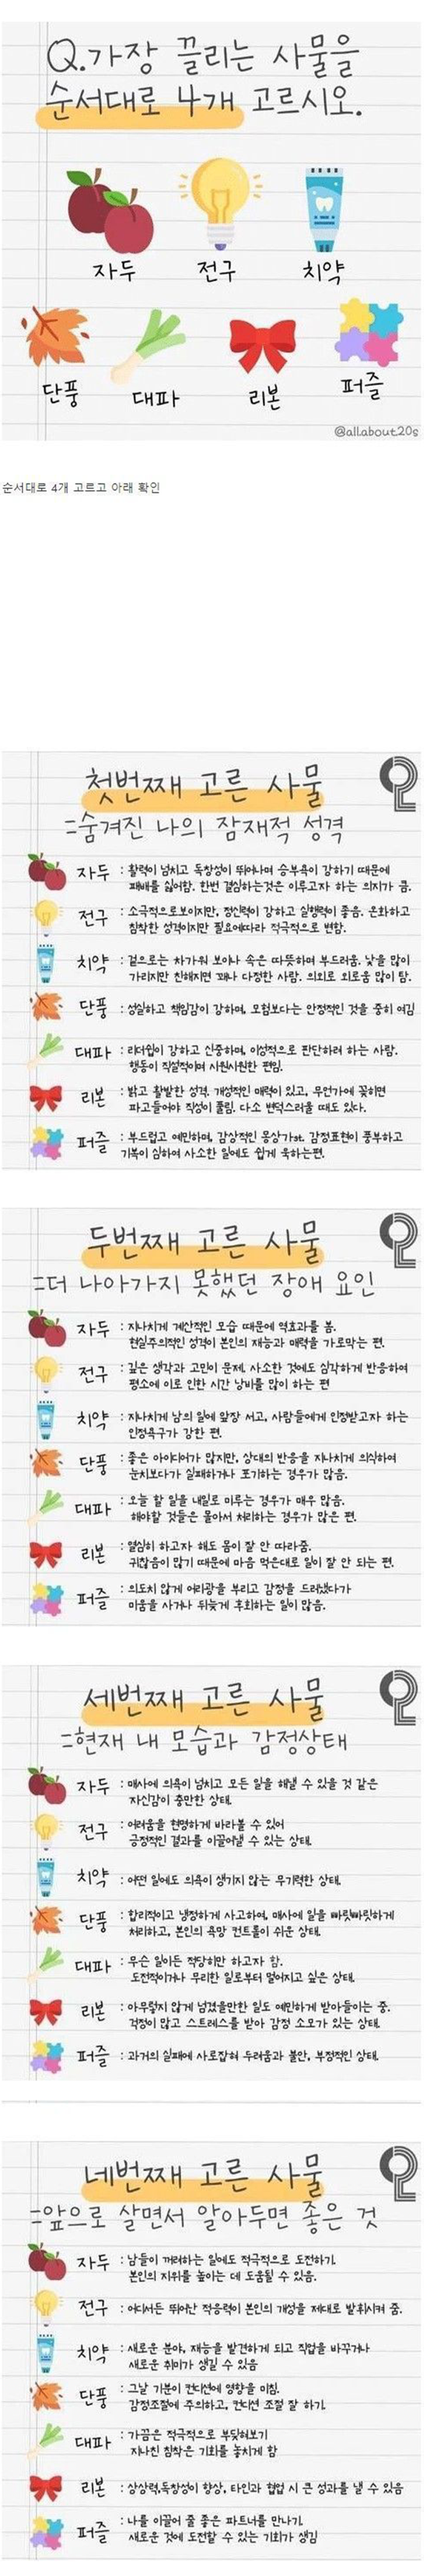 Q.가장 끌리는 사물을
순서대로 4개 고르시오.
자두
전구
치약
단풍
대파
리본
퍼즐
@allabout20s
순서대로 4개 고르고 아래 확인
첫번째 고른 사물
=숨겨진 나의 잠재적 성격
자두 : 활력이 넘치고 독창성이 뛰어나며 승부욕이 강하기 때문에
패배를 싫어함. 한번 결심하는것은 이루고자 하는 의지가 큼.
전구 : 소극적으로보이지만, 정신력이 강하고 실행력이 좋음. 온화하고
침착한 성격이지만 필요에따라 적극적으로 변함.
치약 : 겉으로는 차가워 보이나 속은 따뜻하며 부드러움. 낯을 많이
가리지만 친해지면 꽤나 다정한 사람. 의외로 외로움 많이 탐.
단풍 : 성실하고 책임감이 강하며, 모험보다는 안정적인 것을 중히 여김
대파 : 리더쉽이 강하고 신중하며, 이성적으로 판단하려 하는 사람.
행동이 직설적이며 시원시원한 편임.
리본 : 밝고 활발한 성격. 개성적인 매력이 있고, 무언가에 꽂히면
파고들어야 직성이 풀림. 다소 변덕스러울 때도 있다.
퍼즐 : 부드럽고 예민하며, 감상적인 몽상가st. 감정표현이 풍부하고
기복이 심하여 사소한 일에도 쉽게 욱하는편.
두번째 고른 사물
=더 나아가지 못했던 장애 요인
자두 : 지나치게 계산적인 모습 때문에 역효과를 봄.
현실주의적인 성격이 본인의 재능과 매력을 가로막는 편.
전구 : 깊은 생각과 고민이 문제. 사소한 것에도 심각하게 반응하여
평소에 이로 인한 시간 낭비를 많이 하는 편
치약 : 지나치게 남의 일에 앞장 서고, 사람들에게 인정받고자 하는
인정욕구가 강한 편.
단풍 : 좋은 아이디어가 많지만, 상대의 반응을 지나치게 의식하여
눈치보다가 실패하거나 포기하는 경우가 많음.
대파 : 오늘 할 일을 내일로 미루는 경우가 매우 많음.
해야할 것들은 몰아서 처리하는 경우가 많은 편.
리본 : 열심히 하고자 해도 몸이 잘 안 따라줌.
귀찮음이 많기 때문에 마음 먹은대로 일이 잘 안 되는 편.
퍼즐 : 의도치 않게 어리광을 부리고 감정을 드러냈다가
미움을 사거나 뒤늦게 후회하는 일이 많음.
세번째 고른 사물
=현재 내 모습과 감정상태
자두 : 매사에 의욕이 넘치고 모든 일을 해낼 수 있을 것 같은
자신감이 충만한 상태.
전구 : 어려움을 현명하게 바라볼 수 있어
긍정적인 결과를 이끌어낼 수 있는 상태.
치약 : 어떤 일에도 의욕이 생기지 않는 무기력한 상태.
단풍 : 합리적이고 냉정하게 사고하여, 매사에 일을 빠릿빠릿하게
처리하고, 본인의 욕망 컨트롤이 쉬운 상태.
대파 : 무슨 일이든 적당히만 하고자 함.
도전적이거나 무리한 일로부터 멀어지고 싶은 상태.
리본 : 아무렇지 않게 넘겼을만한 일도 예민하게 받아들이는 중.
걱정이 많고 스트레스를 받아 감정 소모가 있는 상태.
퍼즐 : 과거의 실패에 사로잡혀 두려움과 불안, 부정적인 상태.
네번째 고른 사물
=앞으로 살면서 알아두면 좋은 것
자두 : 남들이 꺼려하는 일에도 적극적으로 도전하기.
본인의 지위를 높이는 데 도움될 수 있음.
전구 : 어디서든 뛰어난 적응력이 본인의 개성을 제대로 발휘시켜 줌.
치약 : 새로운 분야, 재능을 발견하게 되고 직업을 바꾸거나
새로운 취미가 생길 수 있음
단풍 : 그날 기분이 컨디션에 영향을 미침.
감정조절에 주의하고, 컨디션 조절 잘 하기.
대파 : 가끔은 적극적으로 부딪혀보기
지나친 침착은 기회를 놓치게 함
리본 : 상상력,독창성이 향상, 타인과 협업 시 큰 성과를 낼 수 있음
퍼즐 : 나를 이끌어 줄 좋은 파트너를 만나기.
새로운 것에 도전할 수 있는 기회가 생김